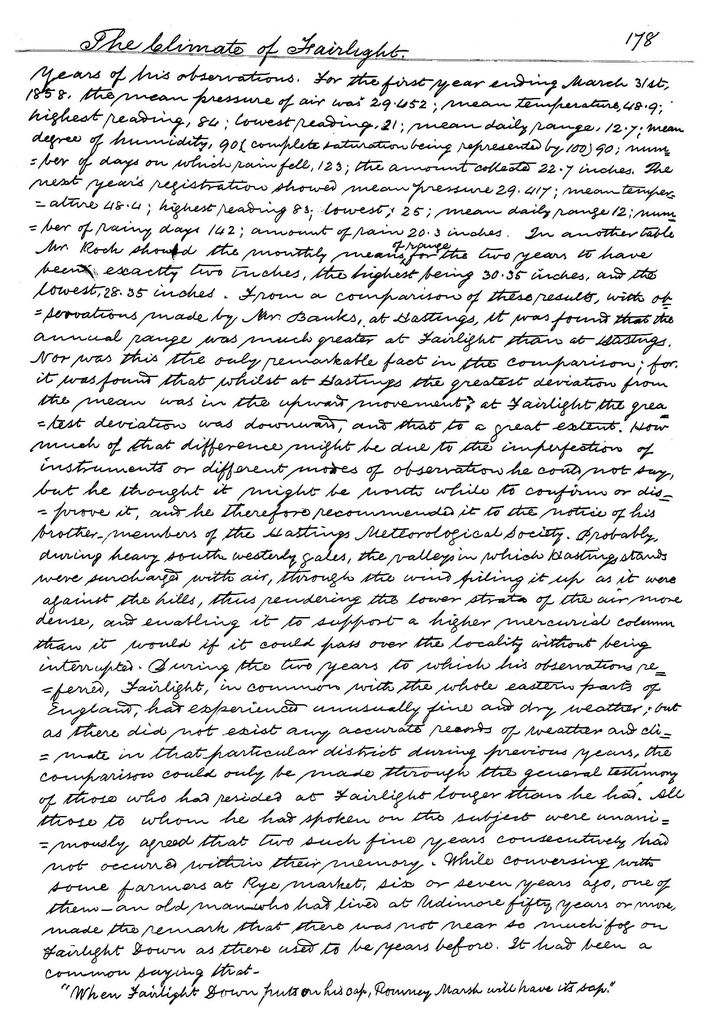 The Climate of Fairlight. 178
years of his observations. For the first year ending March 31st,
1858, the mean pressure of air was 29.452; mean temperature, 48.9;
highest reading, 84; lowest reading, 21; mean daily range, 12.7; mean
degree of humidity, 90 (complete saturation being represented by 100) 90; num=
=ber of days on which rain fell, 123; the amount collected 22.7 inches. The
next year's registration showed mean pressure 29.417; mean temper=
=ature 48.4; highest reading 83; lowest, 25; mean daily range 12; num=
=ber of rainy days 142; amount of rain 20.3 inches. In another table
Mr. Rock showed the monthly means of range for the two years to have
been exactly two inches, the highest being 30.35 inches, and the
lowest, 28.35 inches. From a comparison of these results, with ob=
=servations made by Mr. Banks, at Hastings, it was found that the
annual range was much greater at Fairlight than at Hastings.
Nor was this the only remarkable fact in the comparison; for,
it was found that whilst at Hastings the greatest deviation from
the mean was in the upward movement, at Fairlight the grea
=test deviation was downward, and that to a great extent. How
much of that difference might be due to the imperfection of
instruments or different modes of observation he could not say,
but he thought it might be worth while to confirm or dis=
=prove it, and he therefore recommended it to the notice of his
brother-members of the Hastings Meteorological Society. Probably,
during heavy south westerly gales, the valleys in which Hastings stands
were surcharged with air, through the wind piling it up as it were
against the hills, thus rendering the lower strata of the air more
dense, and enabling it to support a higher mercurial column
than it would if it could pass over the locality without being
interrupted. During the two years to which his observations re=
=ferred, Fairlight, in common with the whole eastern parts of
England, had experienced unusually fine and dry weather; but
as there did not exist any accurate records of weather and cli=
=mate in that particular district during previous years, the
comparison could only be made through the general testimony
of those who had resided at Fairlight longer than he had. All
those to whom he had spoken on the subject were unani=
=mously agreed that two such fine years consecutively had
not occurred within their memory. While conversing with
some farmers at Rye market, six or seven years ago, one of
them - an old man who had lived at Udimore fifty years or more,
made the remark that there was not near so much fog on
Fairlight Down as there used to be years before. It had been a
common saying that -
"When Fairlight Down puts on his cap, Romney Marsh will have its sap."